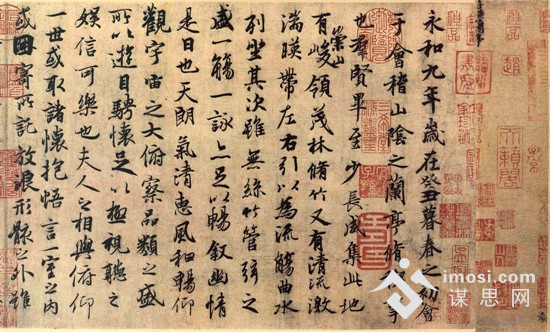 永和九年歲在癸丑暮春之初會
于會稽山陰之蘭亭脩禊事
也羣賢畢至少長咸集此地
有崇山峻領茂林脩竹又有清流激
湍暎帶左右引以為流觴曲水
列坐其次雖無絲竹管弦之
盛一觴一詠亦足以暢敘幽情
是日也天朗氣清惠風和暢仰
觀宇宙之大俯察品類之盛
所以遊目騁懷足以極視聽之
娛信可樂也夫人之相與俯仰
一世或取諸懷抱悟言一室之內
或因寄所託放浪形骸之外雖
imosi.com
谋思网